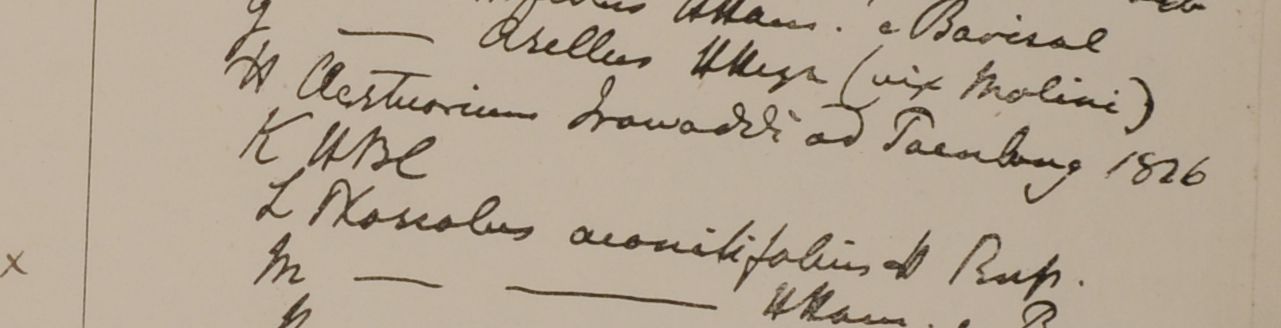 HHam. e Barisal
G — Asellus HHeyn (vix Molini)
H Aestuarium Irawaddi ad Taenlong 1826
K HBC
L Phaseolus aconitifolius H Rup.
M — — HHam. e